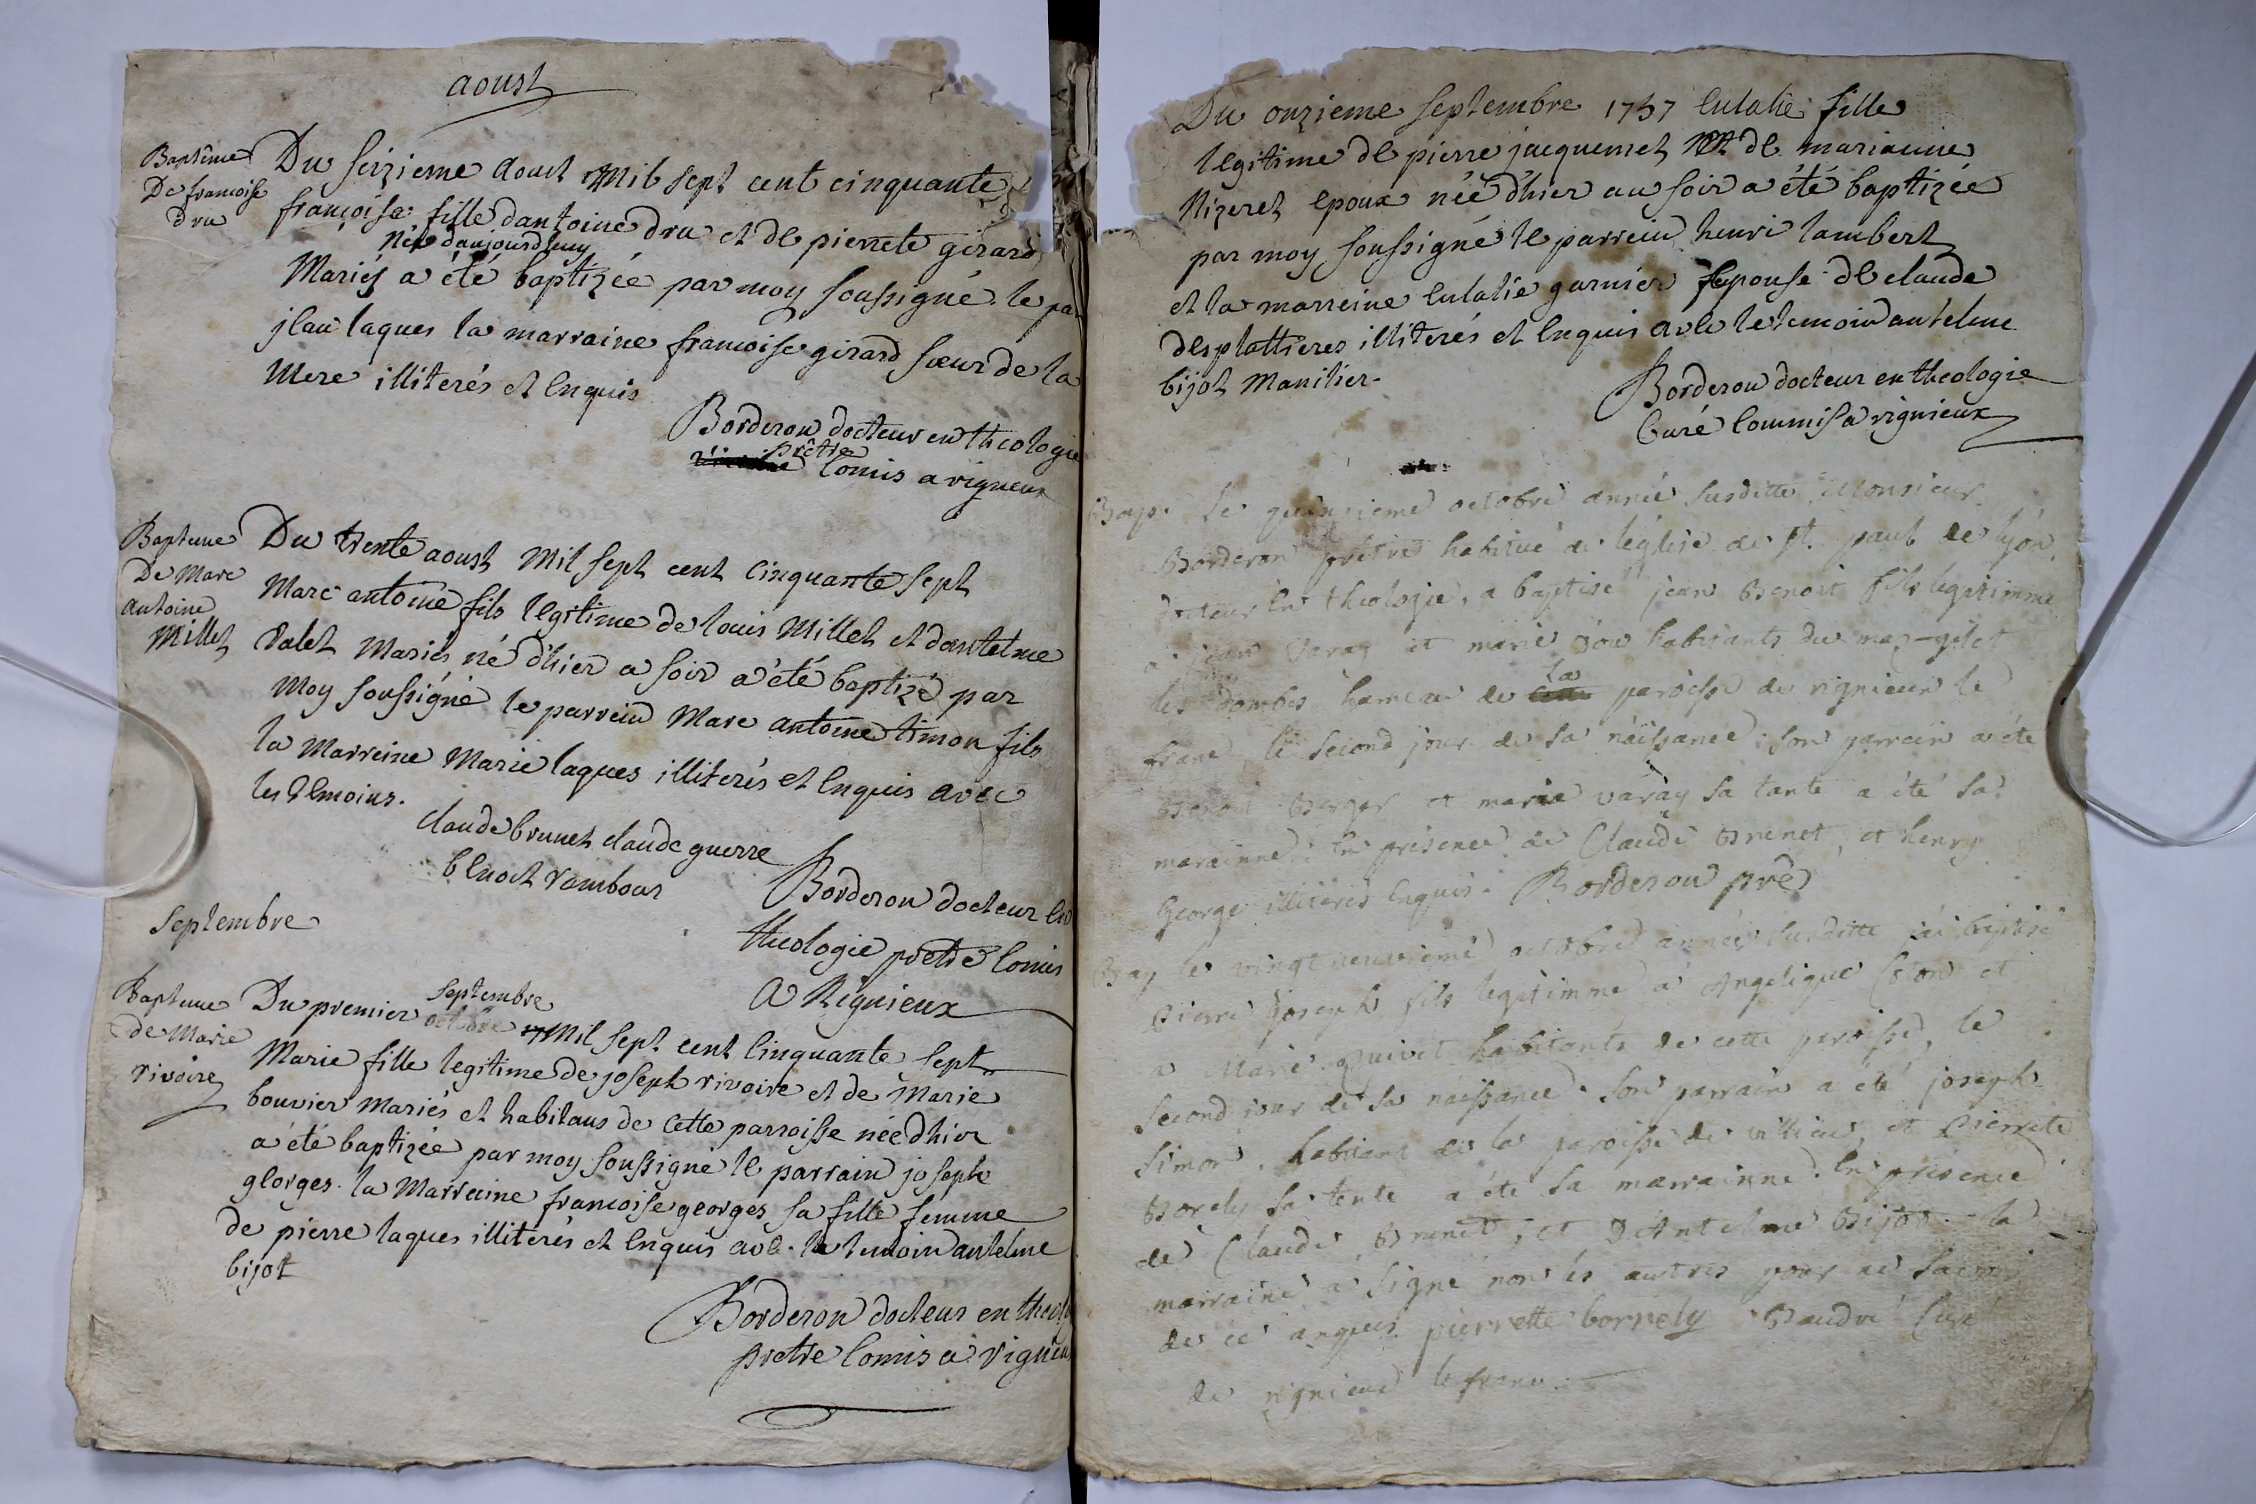 aoust
Baptême
De francoise
dru
Du seizieme aout Mil sept cent cinquante
françoise fille dantoine dru et de pierrete girard
Née daujourdhuy
Mariés a été baptizée par moy soussigné le pa
jlau laques la marraine francoise girard sœur de la
Mere illiterés et Enquis
Borderon docteur en theologie
prêtre
Comis a rignieux
Baptume
De Marc
antoine
Millet
Du trente aoust Mil sept cent Cinquante sept
Marc antoine fils legitime de louis Millet et dantelme
valet Mariés né d'hier a soir a été baptizé par
Moy soussigné le parrein Marc antoine timon fils
la Marreine Marie laques illiterés et Enquis avec
les temoins.
claude brunet claude guerre
benoit rambour
Borderon docteur En
theologie pretre Comis
A Rignieux
Septembre
Baptume
de Marie
rivoire
septembre
Du premier octobre Mil sept cent Cinquante sept
Marie fille legitime de joseph rivoire et de Marie
bouvier Mariés et habitans de Cette parroisse née dhier
a été baptizée par moy soussigné le parrain joseph
georges. la Marreine francoise georges sa fille femme
de pierre laques illiterés et Enquis avec le temoin antelme
bijot
Borderon docteur en theolo
pretre Comis a rignieu
Du onzieme septembre 1757 Eulalie fille
legitime de pierre jacquemet de marianne
Nizeret epoux née d'hier au soir a été baptizée
par moy soussigné le parrein henri lambert
et la marreine Eulalie garnier epouse de claude
desplattieres illiterés et Enquis avec le temoin antelme
bijot Manilier.
Borderon docteur en theologie
Curé Commis a rignieux
Bap. Le quinsieme octobre année susditte Monsieur
Borderon prêtre habitué de l'église de St. paul de lyon,
docteur En theologie, a baptisé jean Benoit fils legitimme
a jean Varay et marie habitants du mas
les dombes hameau de la paroisse de rignieux le
franc, le second jour de sa naissance: son parrain a été
Benoit Berger et maria varay sa tante a été sa
marainne: En présence de Claude Brunet, et henry
George illitérés Enquis. Borderon prê
Bap le vingt neuvieme octobre année susditte j'ai baptisé
pierre joseph fils legitimme a Angelique et
a Marie habitants de cette paroisse, le
second jour de sa naissance. Son parrain a été joseph
Simon, habitant de la paroisse de villieu, et pierrete
Borely sa tente a été sa marrainne. En présence
de Claude Brunet, et D'Antelme Bijot. la
marraine a signé non les autres pour ne savoir
de ce anquis. pierrette borrely Baudré Curé
de rignieux le franc.